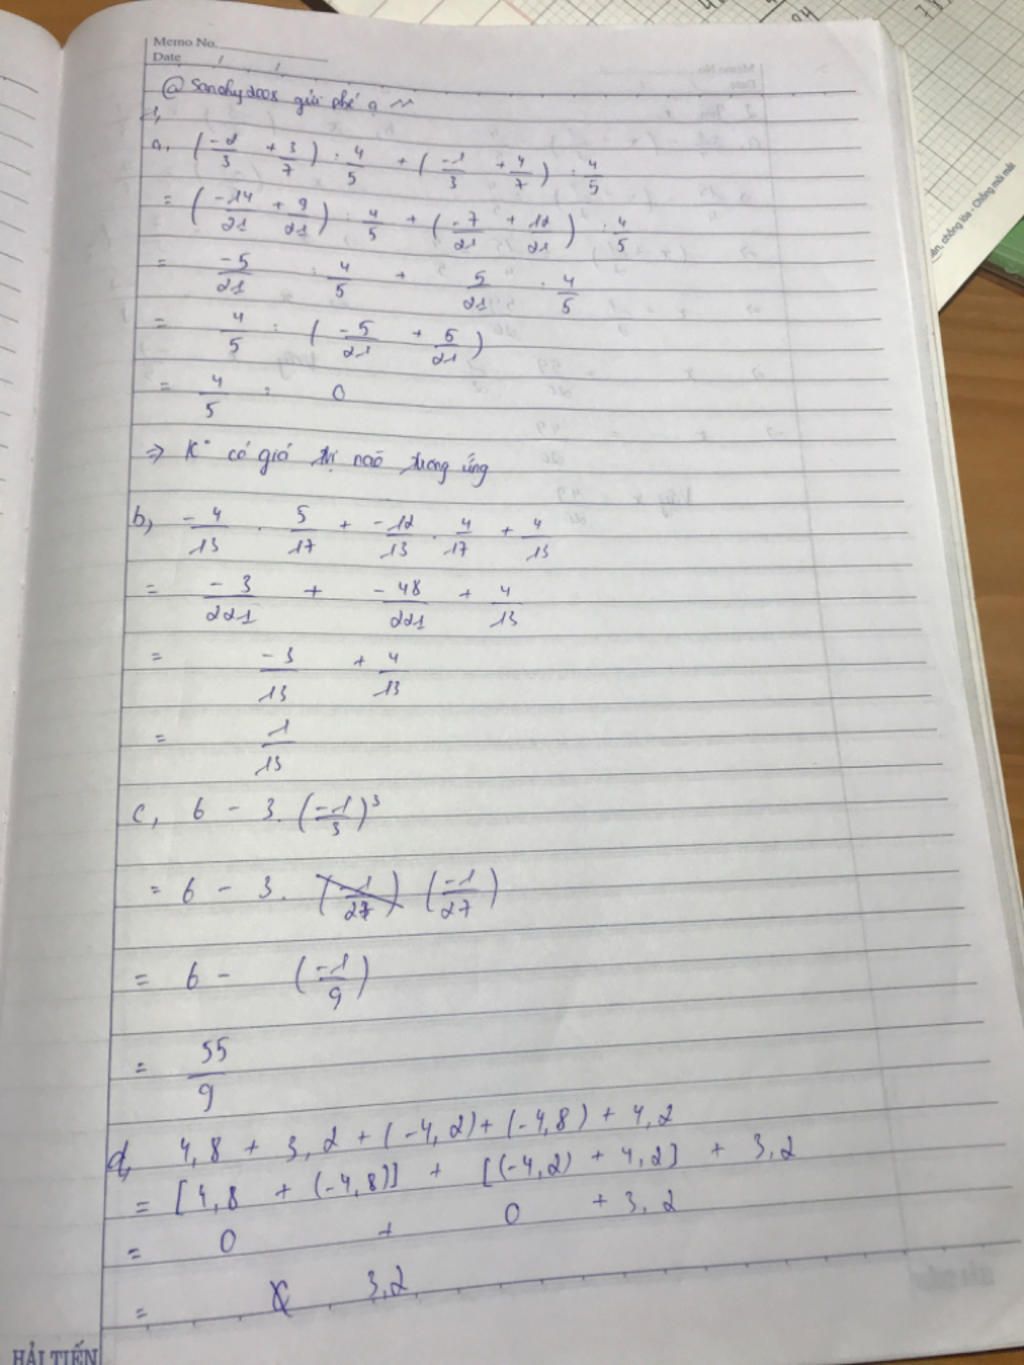 Memo No.
Date / /
@Sanahydoos gửi phé ạ ~
1,
a, (-2/3 + 3/7) : 4/5 + (-1/3 + 4/7) : 4/5
= (-14/21 + 9/21) : 4/5 + (-7/21 + 12/21) : 4/5
= -5/21 : 4/5 + 5/21 : 4/5
= 4/5 : (-5/21 + 5/21)
= 4/5 : 0
=> K° có giá trị nào tương ứng
b, -4/13 . 5/17 + -12/13 . 4/17 + 4/13
= -3/221 + -48/221 + 4/13
= -3/13 + 4/13
= 1/13
c, 6 - 3. (-1/3)³
= 6 - 3. (-1/27) (-1/27)
= 6 - (-1/9)
= 55/9
d, 4,8 + 3,2 + (-4,2) + (-4,8) + 4,2
= [4,8 + (-4,8)] + [(-4,2) + 4,2] + 3,2
= 0 + 0 + 3,2
= 3,2
HẢI TIẾN
Chống lóa - Chống mỏi mắt